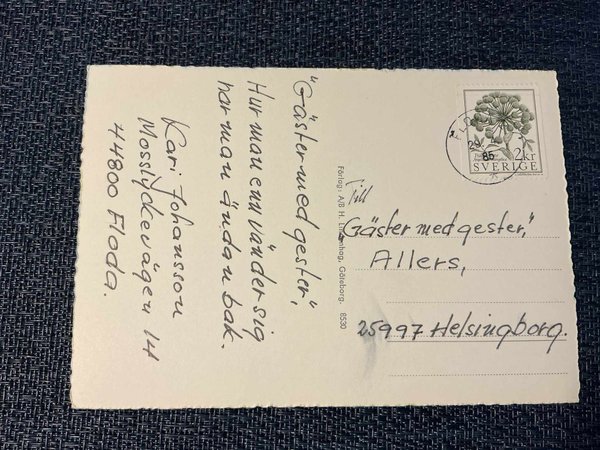 "Gäster med gester,"
Hur man enn vänder sig
har man ändan bak.
Kari Johansson
Mosslyckevägen 14
44800 Floda.
Förlag: A/B H. Lindenhag, Göteborg. 8530
2 kr
SVERIGE
85
Till
"Gäster med gester,"
Allers,
25997 Helsingborg.